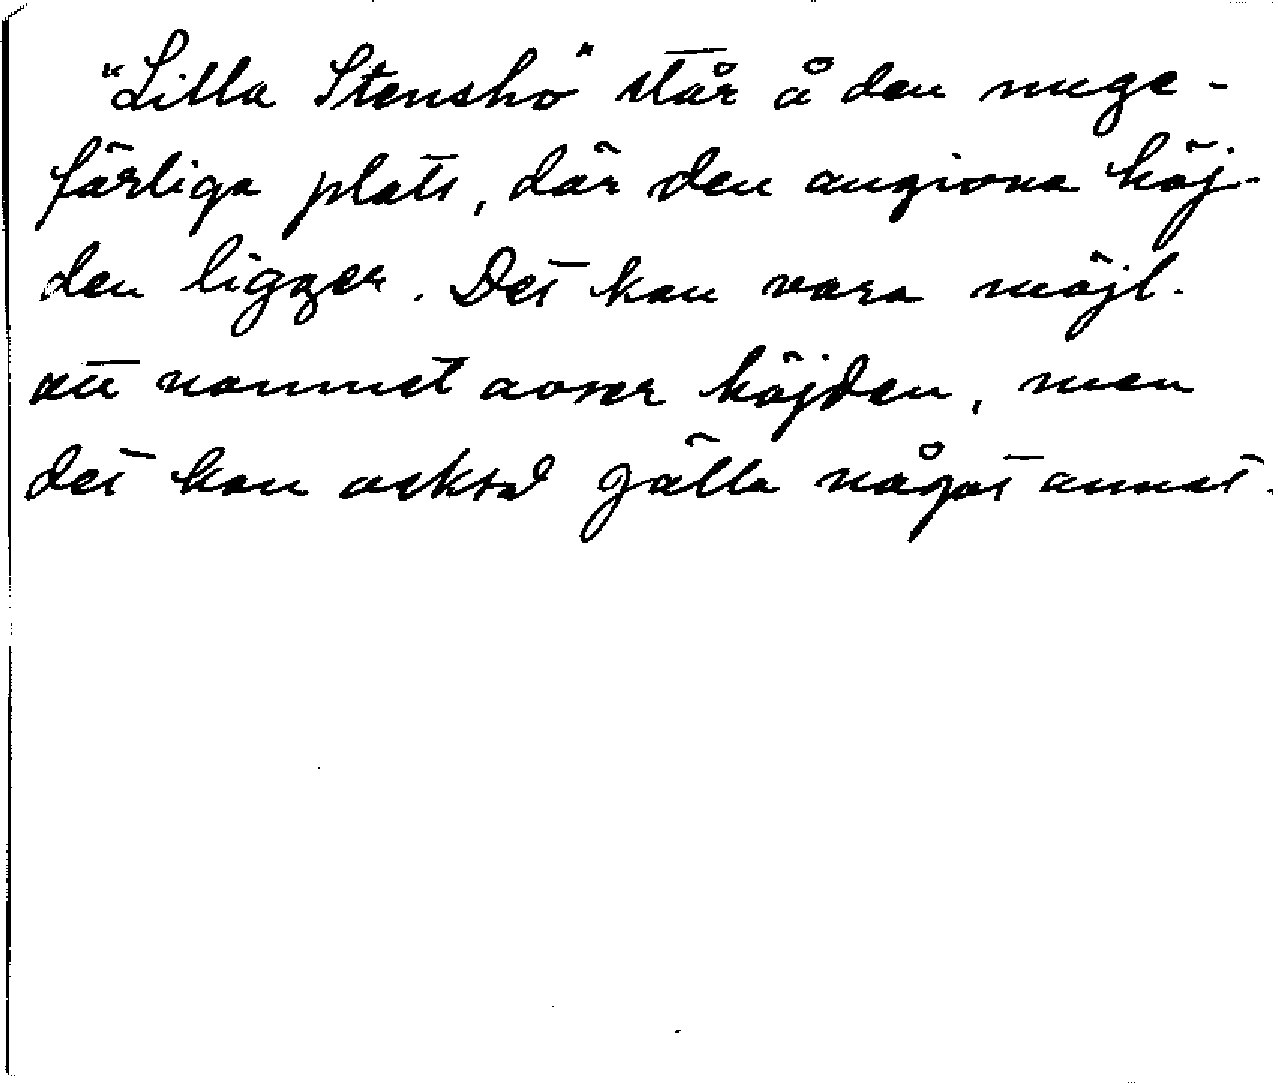 "Lilla Stenshö" står å den unge-
färliga plats, där den angivna höj-
den ligger. Det kan vara möjl.
att namnet avser höjden, men
det kan också gälla något annat.